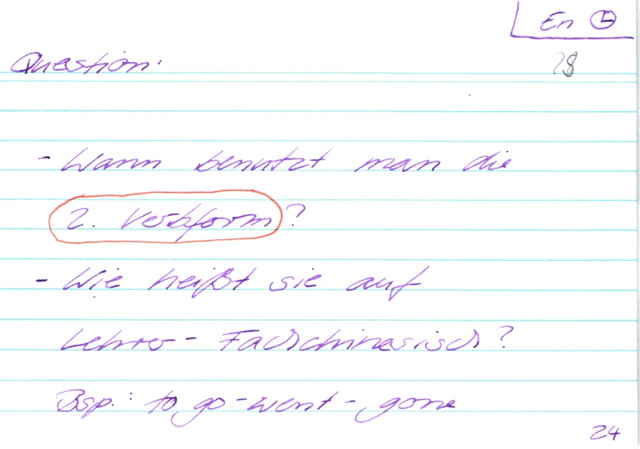 En
28
Question:
- Wann benutzt man die
2. Verbform?
- Wie heißt sie auf
Lehrer-Fachchinesisch?
Bsp.: to go - went - gone
24